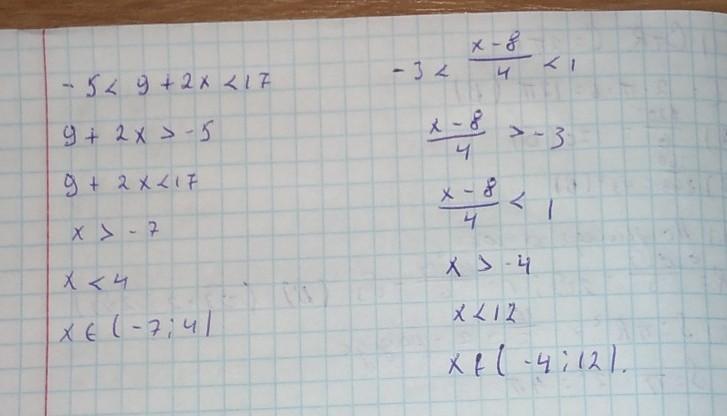 - 5 < 9 + 2x < 17
9 + 2x > -5
9 + 2x < 17
x > - 7
x < 4
x ∈ (- 7; 4)
- 3 < (x - 8)/4 < 1
(x - 8)/4 > - 3
(x - 8)/4 < 1
x > -4
x < 12
x ∈ ( -4; 12).